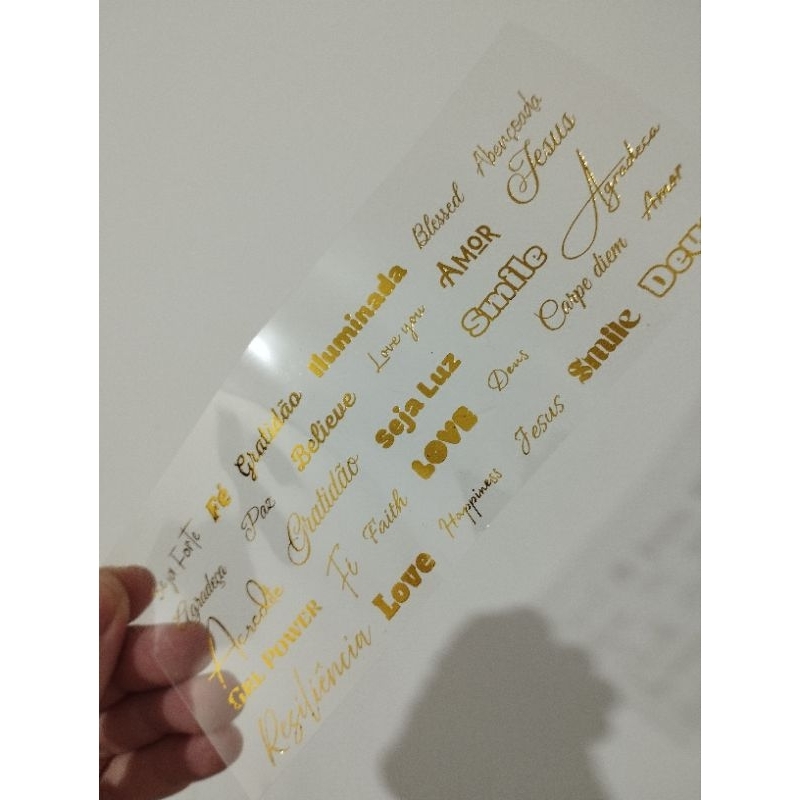 Seja Forte Fé Gratidão Iluminada Blessed Abençoada
Agradeça Paz Believe Love you AMOR Jesus
Acredite Gratidão Seja Luz Smile Agradeça
GRL POWER Fé Faith LOVE Deus Carpe diem Amor
Resiliência Love Happiness Jesus Smile Deus